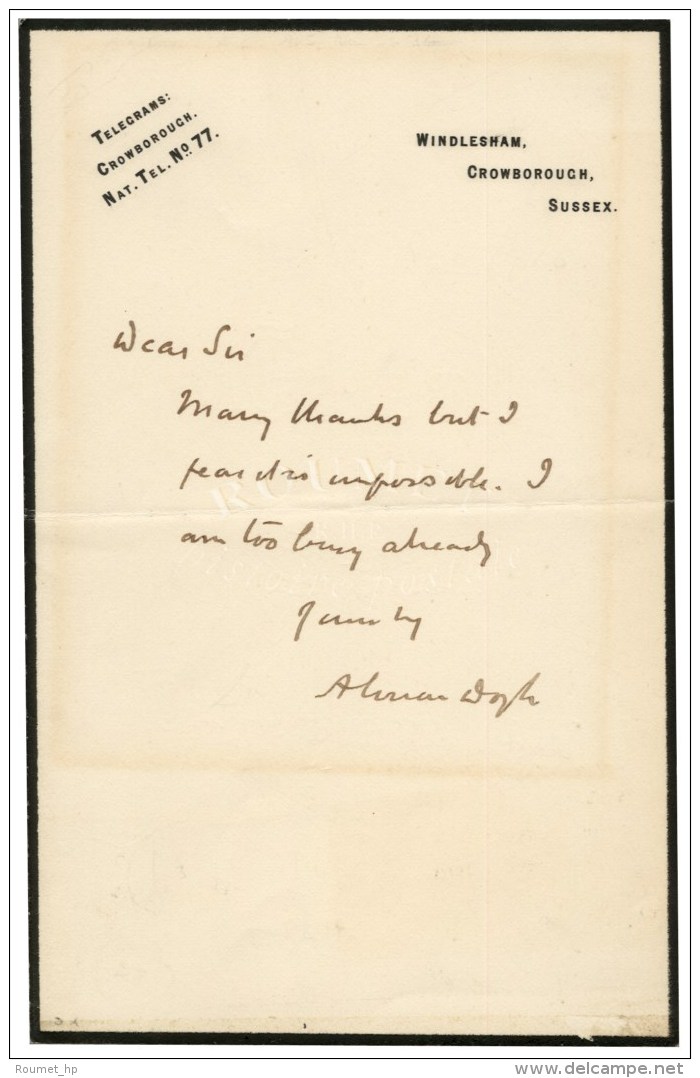 TELEGRAMS:
CROWBOROUGH.
NAT. TEL. Nº 77.
WINDLESHAM,
CROWBOROUGH,
SUSSEX.
Dear Sir
Many thanks but I
fear it is impossible. I
am too busy already
Yours try
A Conan Doyle
Roumet_hp
www.delcampe.net